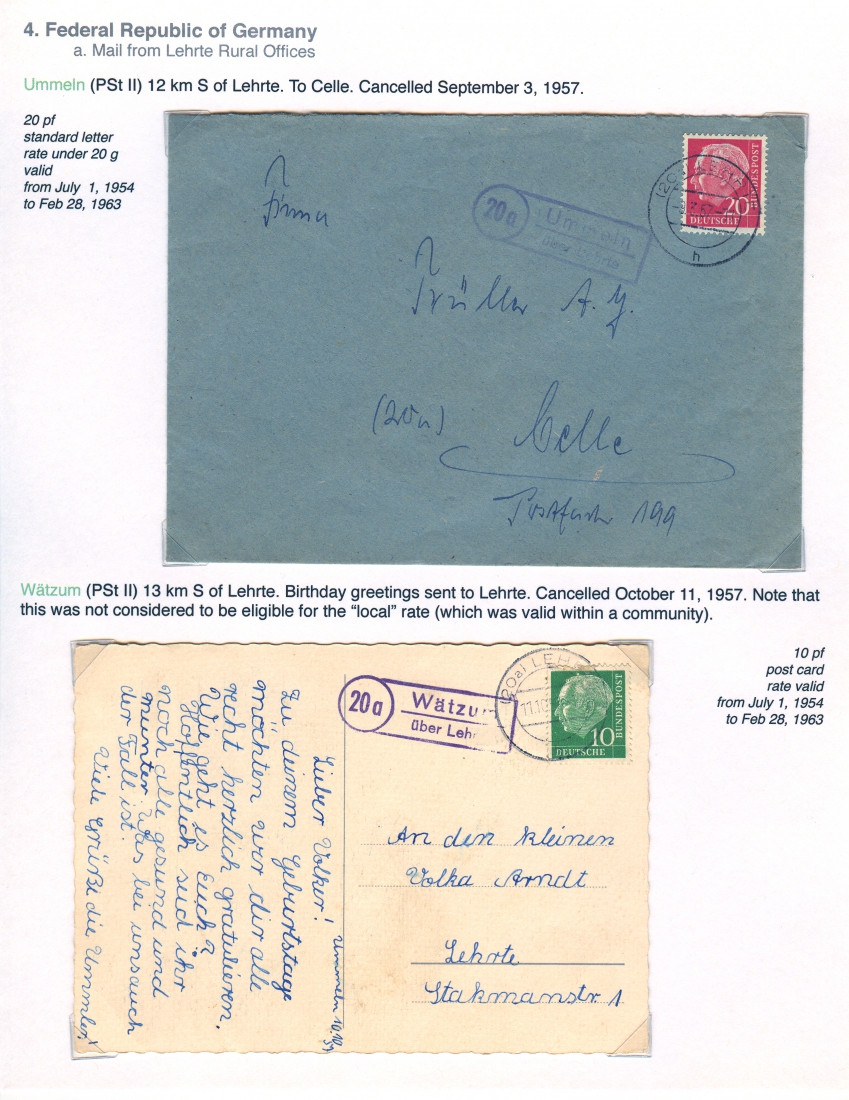 4. Federal Republic of Germany
a. Mail from Lehrte Rural Offices
Ummeln (PSt II) 12 km S of Lehrte. To Celle. Cancelled September 3, 1957.
20 pf
standard letter
rate under 20 g
valid
from July 1, 1954
to Feb 28, 1963
Firma
Trüller A.G.
(20a) Celle
Postfach 199
20a
Ummeln
über Lehrte
h
20
DEUTSCHE
BUNDESPOST
Wätzum (PSt II) 13 km S of Lehrte. Birthday greetings sent to Lehrte. Cancelled October 11, 1957. Note that
this was not considered to be eligible for the “local” rate (which was valid within a community).
10 pf
post card
rate valid
from July 1, 1954
to Feb 28, 1963
20a
Wätzu
über Leh
(20a) LEH
11.10
10
DEUTSCHE
BUNDESPOST
Ummeln 10.10
Lieber Volker!
Zu deinem Geburtstage
möchten wir dir alle
recht herzlich gratulieren.
Wie geht es euch?
Hoffentlich seid ihr
noch alle gesund und
munter was bei uns auch
der Fall ist.
Viele Grüße die Ummler!
An den kleinen
Volka Arndt
Lehrte
Stakmanstr. 1